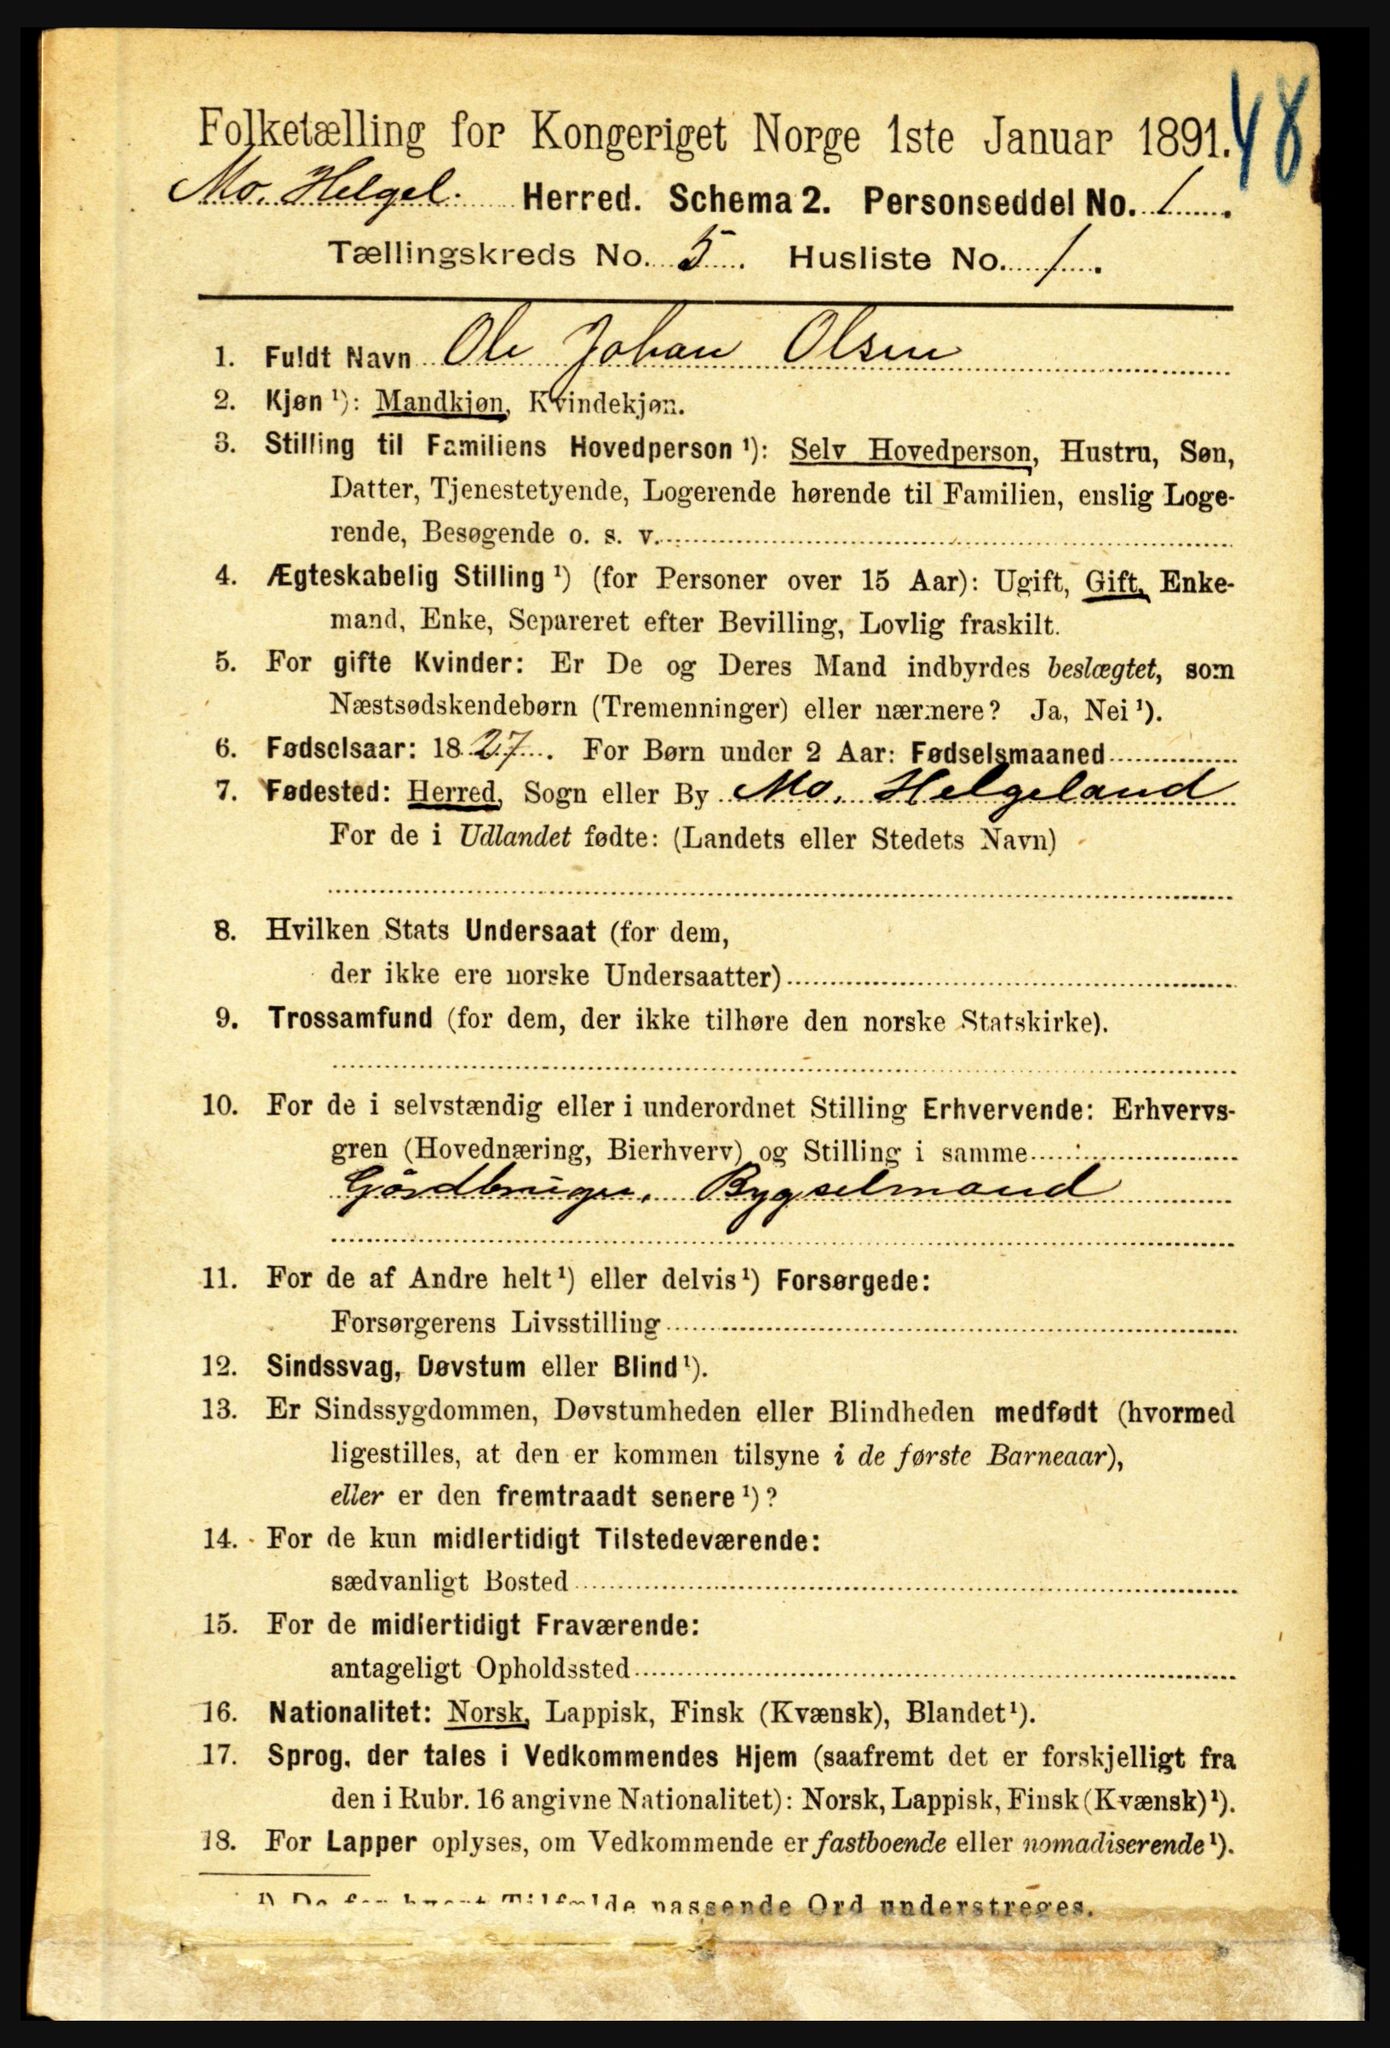 48
Folketælling for Kongeriget Norge 1ste Januar 1891.
Mo. Helgel. Herred. Schema 2. Personseddel No. 1.
Tællingskreds No. 5. Husliste No. 1.
1. Fuldt Navn Ole Johan Olsen
2. Kjøn¹): Mandkjøn, Kvindekjøn.
3. Stilling til Familiens Hovedperson¹): Selv Hovedperson, Hustru, Søn,
Datter, Tjenestetyende, Logerende hørende til Familien, enslig Loge-
rende, Besøgende o. s. v.
4. Ægteskabelig Stilling¹) (for Personer over 15 Aar): Ugift, Gift, Enke-
mand, Enke, Separeret efter Bevilling, Lovlig fraskilt.
5. For gifte Kvinder: Er De og Deres Mand indbyrdes beslægtet, som
Næstsødskendebørn (Tremenninger) eller nærmere? Ja, Nei¹).
6. Fødselsaar: 1827. For Børn under 2 Aar: Fødselsmaaned
7. Fødested: Herred, Sogn eller By Mo, Helgeland
For de i Udlandet fødte: (Landets eller Stedets Navn)
8. Hvilken Stats Undersaat (for dem,
der ikke ere norske Undersaatter)
9. Trossamfund (for dem, der ikke tilhøre den norske Statskirke).
10. For de i selvstændig eller i underordnet Stilling Erhvervende: Erhvervs-
gren (Hovednæring, Bierhverv) og Stilling i samme
Gårdbruger, Bygselmand
11. For de af Andre helt¹) eller delvis¹) Forsørgede:
Forsørgerens Livsstilling
12. Sindssvag, Døvstum eller Blind¹).
13. Er Sindssygdommen, Døvstumheden eller Blindheden medfødt (hvormed
ligestilles, at den er kommen tilsyne i de første Barneaar),
eller er den fremtraadt senere¹)?
14. For de kun midlertidigt Tilstedeværende:
sædvanligt Bosted
15. For de midlertidigt Fraværende:
antageligt Opholdssted
16. Nationalitet: Norsk, Lappisk, Finsk (Kvænsk), Blandet¹).
17. Sprog, der tales i Vedkommendes Hjem (saafremt det er forskjelligt fra
den i Rubr. 16 angivne Nationalitet): Norsk, Lappisk, Finsk (Kvænsk)¹).
18. For Lapper oplyses, om Vedkommende er fastboende eller nomadiserende¹).
¹) De for hvert Tilfælde passende Ord understreges.